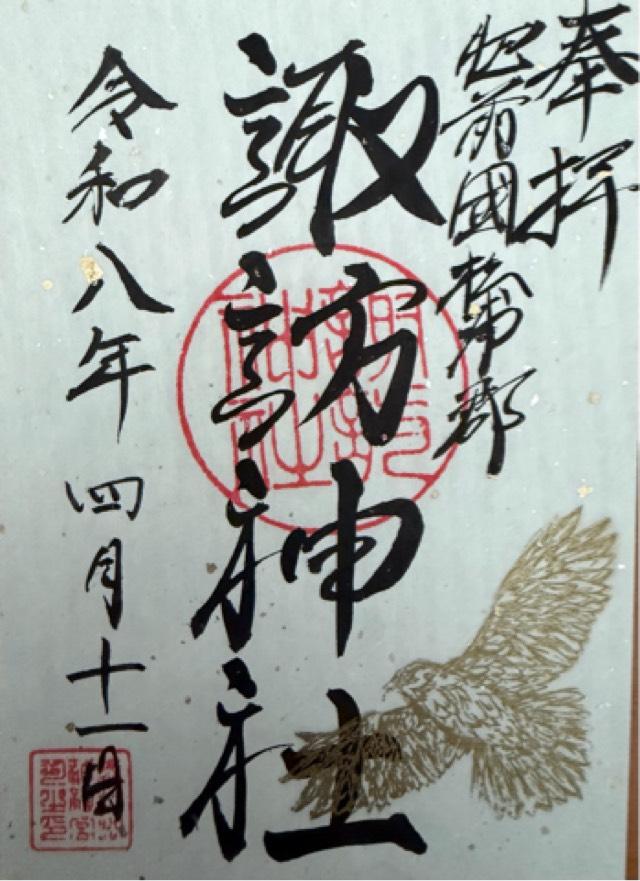 奉拝
肥前國 郡
諏訪神社
諏訪
神社
令和八年 四月十一日